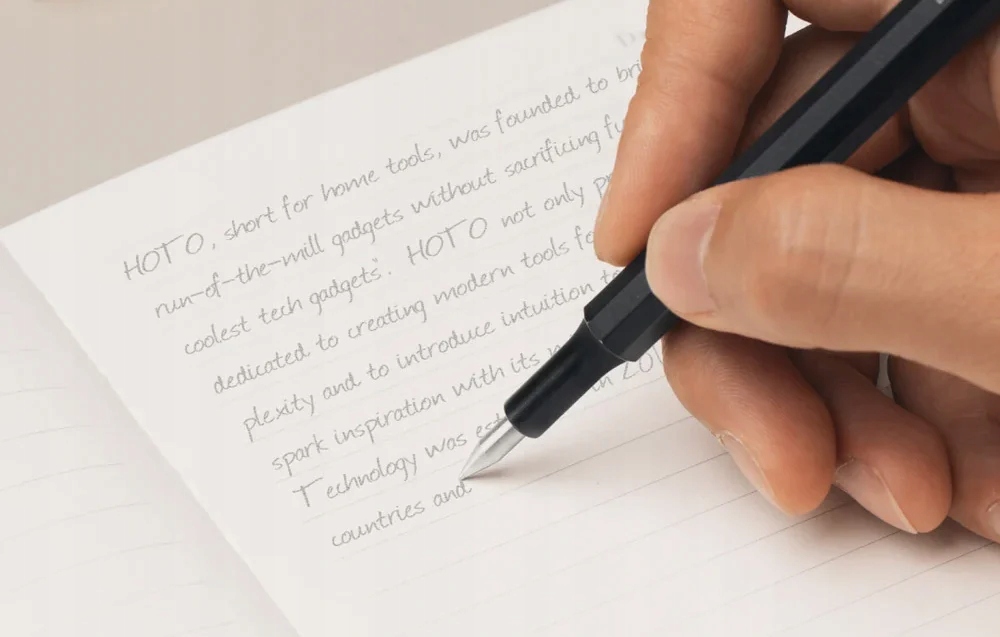 HOTO, short for home tools, was founded to
run-of-the-mill gadgets without sacrificing
coolest tech gadgets". HOTO not only
dedicated to creating modern tools
plexity and to introduce intuition
spark inspiration with its
Technology was
countries and